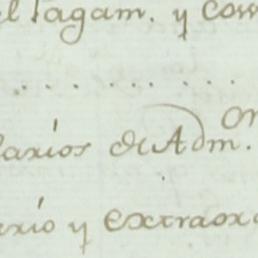 el Pagam. y Com
. . . . . . . . .
larios de Adm.on
ario y extraor